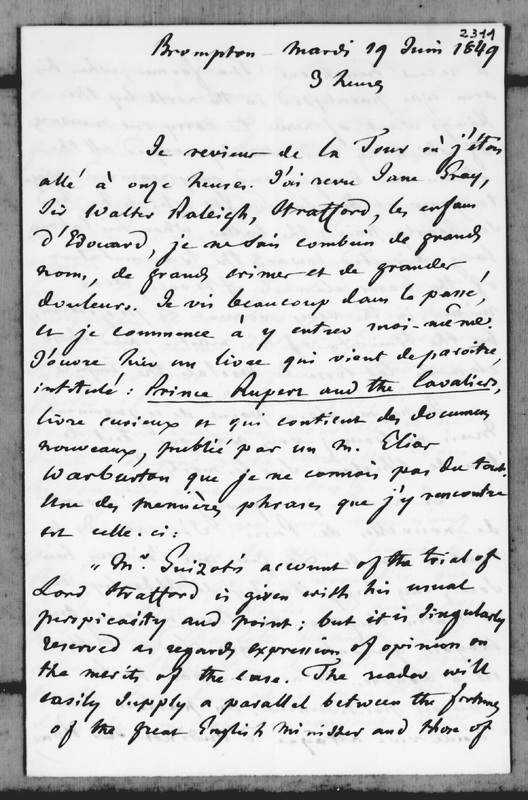 2344
Brompton - Mardi 19 Juin 1849
3 heures
Je reviens de la Tour où j'étois
allé à onze heures. J'ai revu Jane Gray,
Sir Walter Raleigh, Strafford, les enfans
d'Edouard, je ne sais combien de grands
noms, de grands crimes et de grandes
douleurs. Je vis beaucoup dans le passé,
et je commence à y entrer moi-même.
J'ouvre hier un livre qui vient de paroitre,
intitulé : Prince Rupert and the Cavaliers,
livre curieux et qui contient des documens
nouveaux, publié par un M. Eliot
Warburton que je ne connois pas du tout.
Une des premières phrases que j'y rencontre
est celle-ci :
" Mr. Guizot's account of the trial of
Lord Strafford is given with his usual
perspicacity and point ; but it is singularly
reserved as regards expression of opinion on
the merits of the case. The reader will
easily supply a parallel between the fortunes
of the great English minister and those of